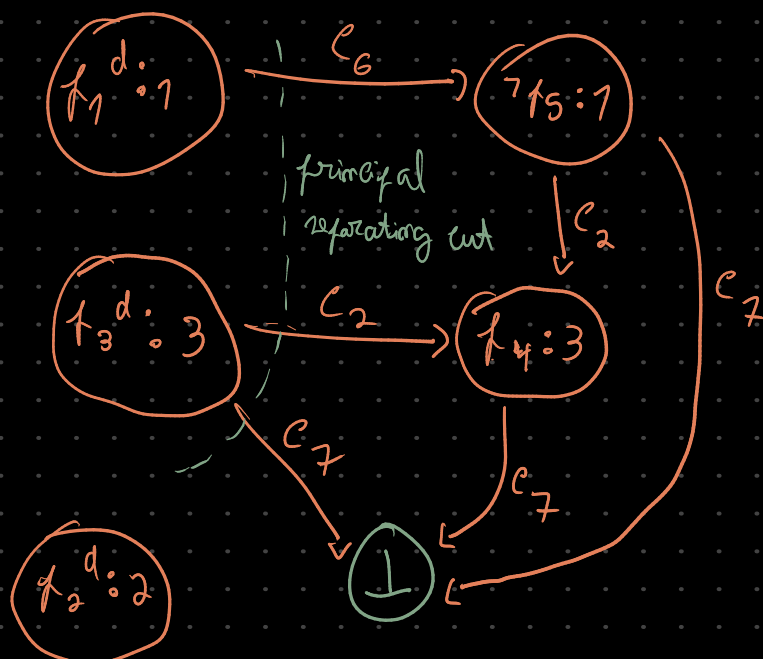 p₁ᵈ : 1
C₆
¬p₅ : 1
principal
separating cut
C₂
C₇
p₃ᵈ : 3
C₂
p₄ : 3
C₇
C₇
⊥
p₂ᵈ : 2